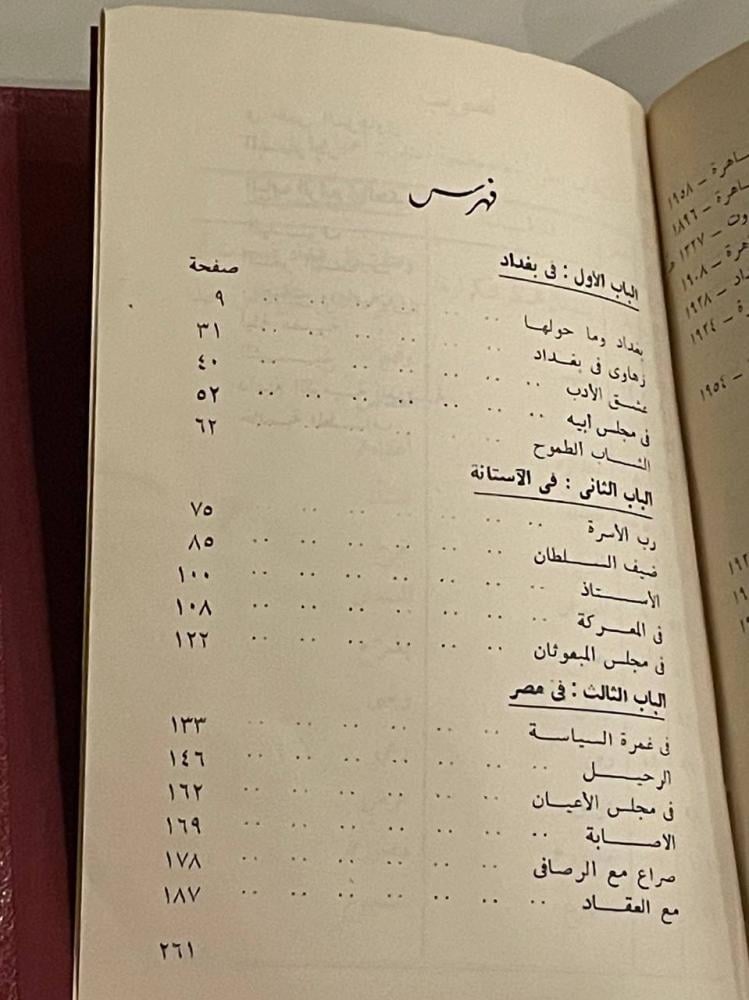 فهرس
صفحة
الباب الأول : فى بغداد
بغداد وما حولها ٩
زهاوى فى بغداد ٣١
عشق الأدب ٤٠
فى مجلس أبيه ٥٢
الشاب الطموح ٦٢
الباب الثانى : فى الآستانة
رب الأسرة ٧٥
ضيف السلطان ٨٥
الأستاذ ١٠٠
فى المعركة ١٠٨
فى مجلس المبعوثان ١٢٢
الباب الثالث : فى مصر
فى غمرة السياسة ١٣٣
الرحيل ١٤٦
فى مجلس الأعيان ١٦٢
الاصابة ١٦٩
صراع مع الرصافى ١٧٨
مع العقاد ١٨٧
٢٦١
اهرة – ١٩٥٨
اهرة – ١٨٩٦
وت – ١٣٢٧
هرة – ١٩٠٨
داد – ١٩٢٨
ة – ١٩٢٤
– ١٩٥٤